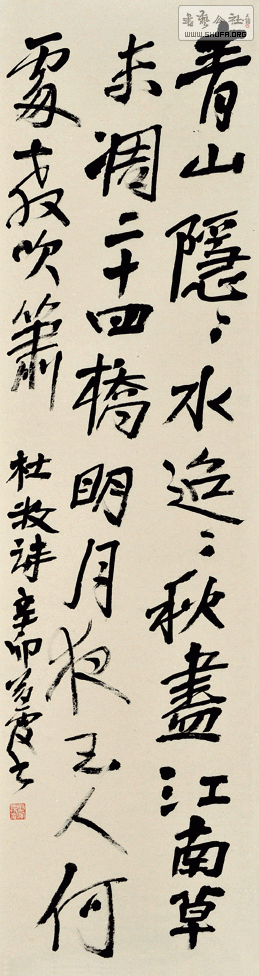 青山隱〻水迢〻秋盡江南草
未凋二十四橋明月夜玉人何
處教吹簫
杜牧詩辛卯
书艺公社
WWW.SHUFA.ORG